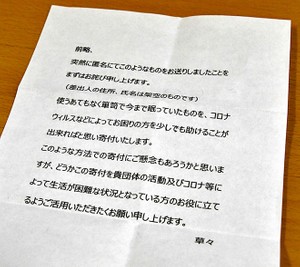 前略、
突然に匿名にてこのようなものをお送りしましたことを
まずはお詫び申し上げます。
(差出人の住所、氏名は架空のものです)
使うあてもなく箪笥で今まで眠っていたものを、コロナ
ウィルスなどによってお困りの方を少しでも助けることが
出来ればと思い寄付いたします。
このような方法での寄付にご懸念もあろうかと思いま
すが、どうかこの寄付を貴団体の活動及びコロナ等に
よって生活が困難な状況となっている方のお役に立て
るようご活用いただきたくお願い申し上げます。
草々